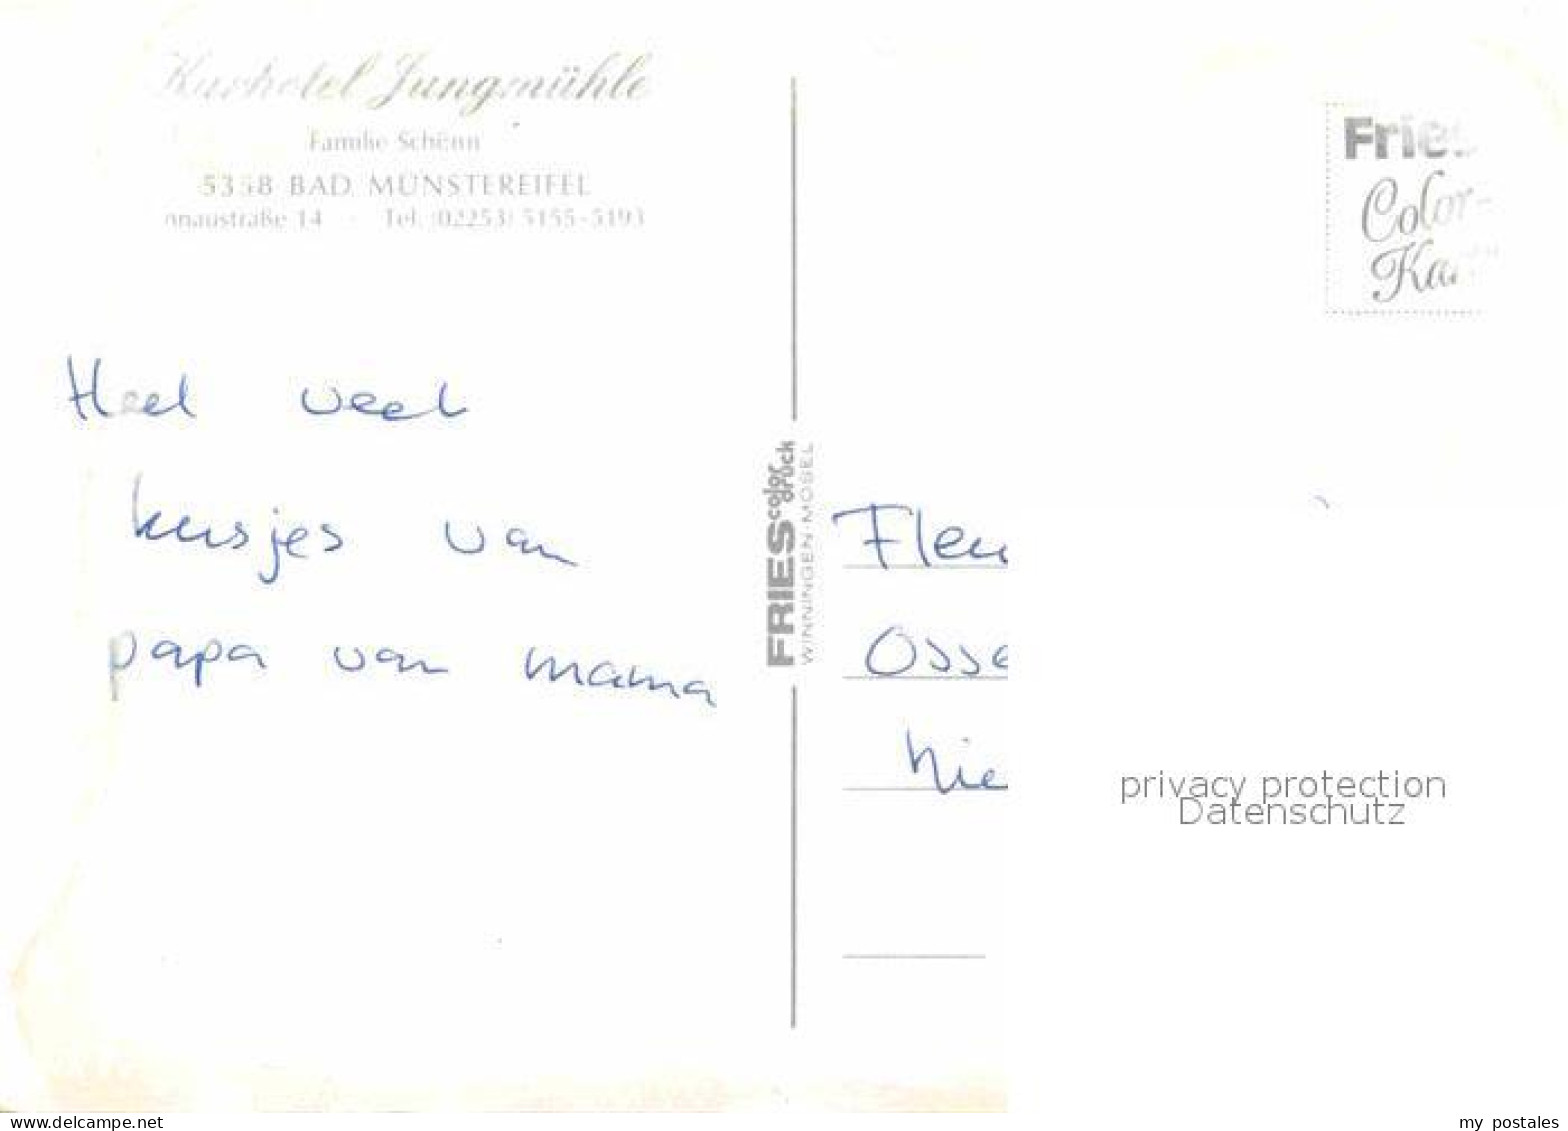 Kurhotel Jungmühle
Familie Schönn
5358 BAD MÜNSTEREIFEL
nnaustraße 14 - Tel. (02253) 5155-5193
Fries
Color-
Heel veel
kusjes van
papa van mama
FRIES color druck
WINNINGEN-MOSEL
Fleu
Osse
Nie
privacy protection
Datenschutz
www.delcampe.net
my postales